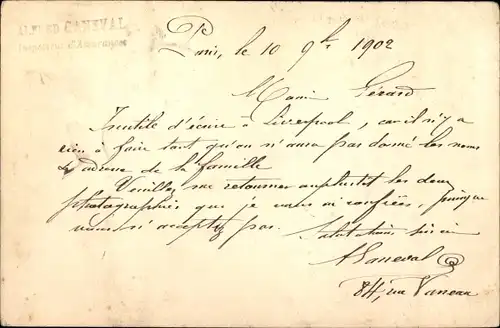 ALFRED CANEVAL
Paris, le 10 9bre 1902
Mr Gérard
Inutile d'écrire à Liverpool, car il n'y a
rien à faire tant qu'on n'aura pas donné les noms
& adresse de la famille
Veuillez me retourner au plus tôt les deux
photographies que je vous ai confiées, puisque
vous n'acceptez pas. Salutations
ACaneval
84, rue Vaneau